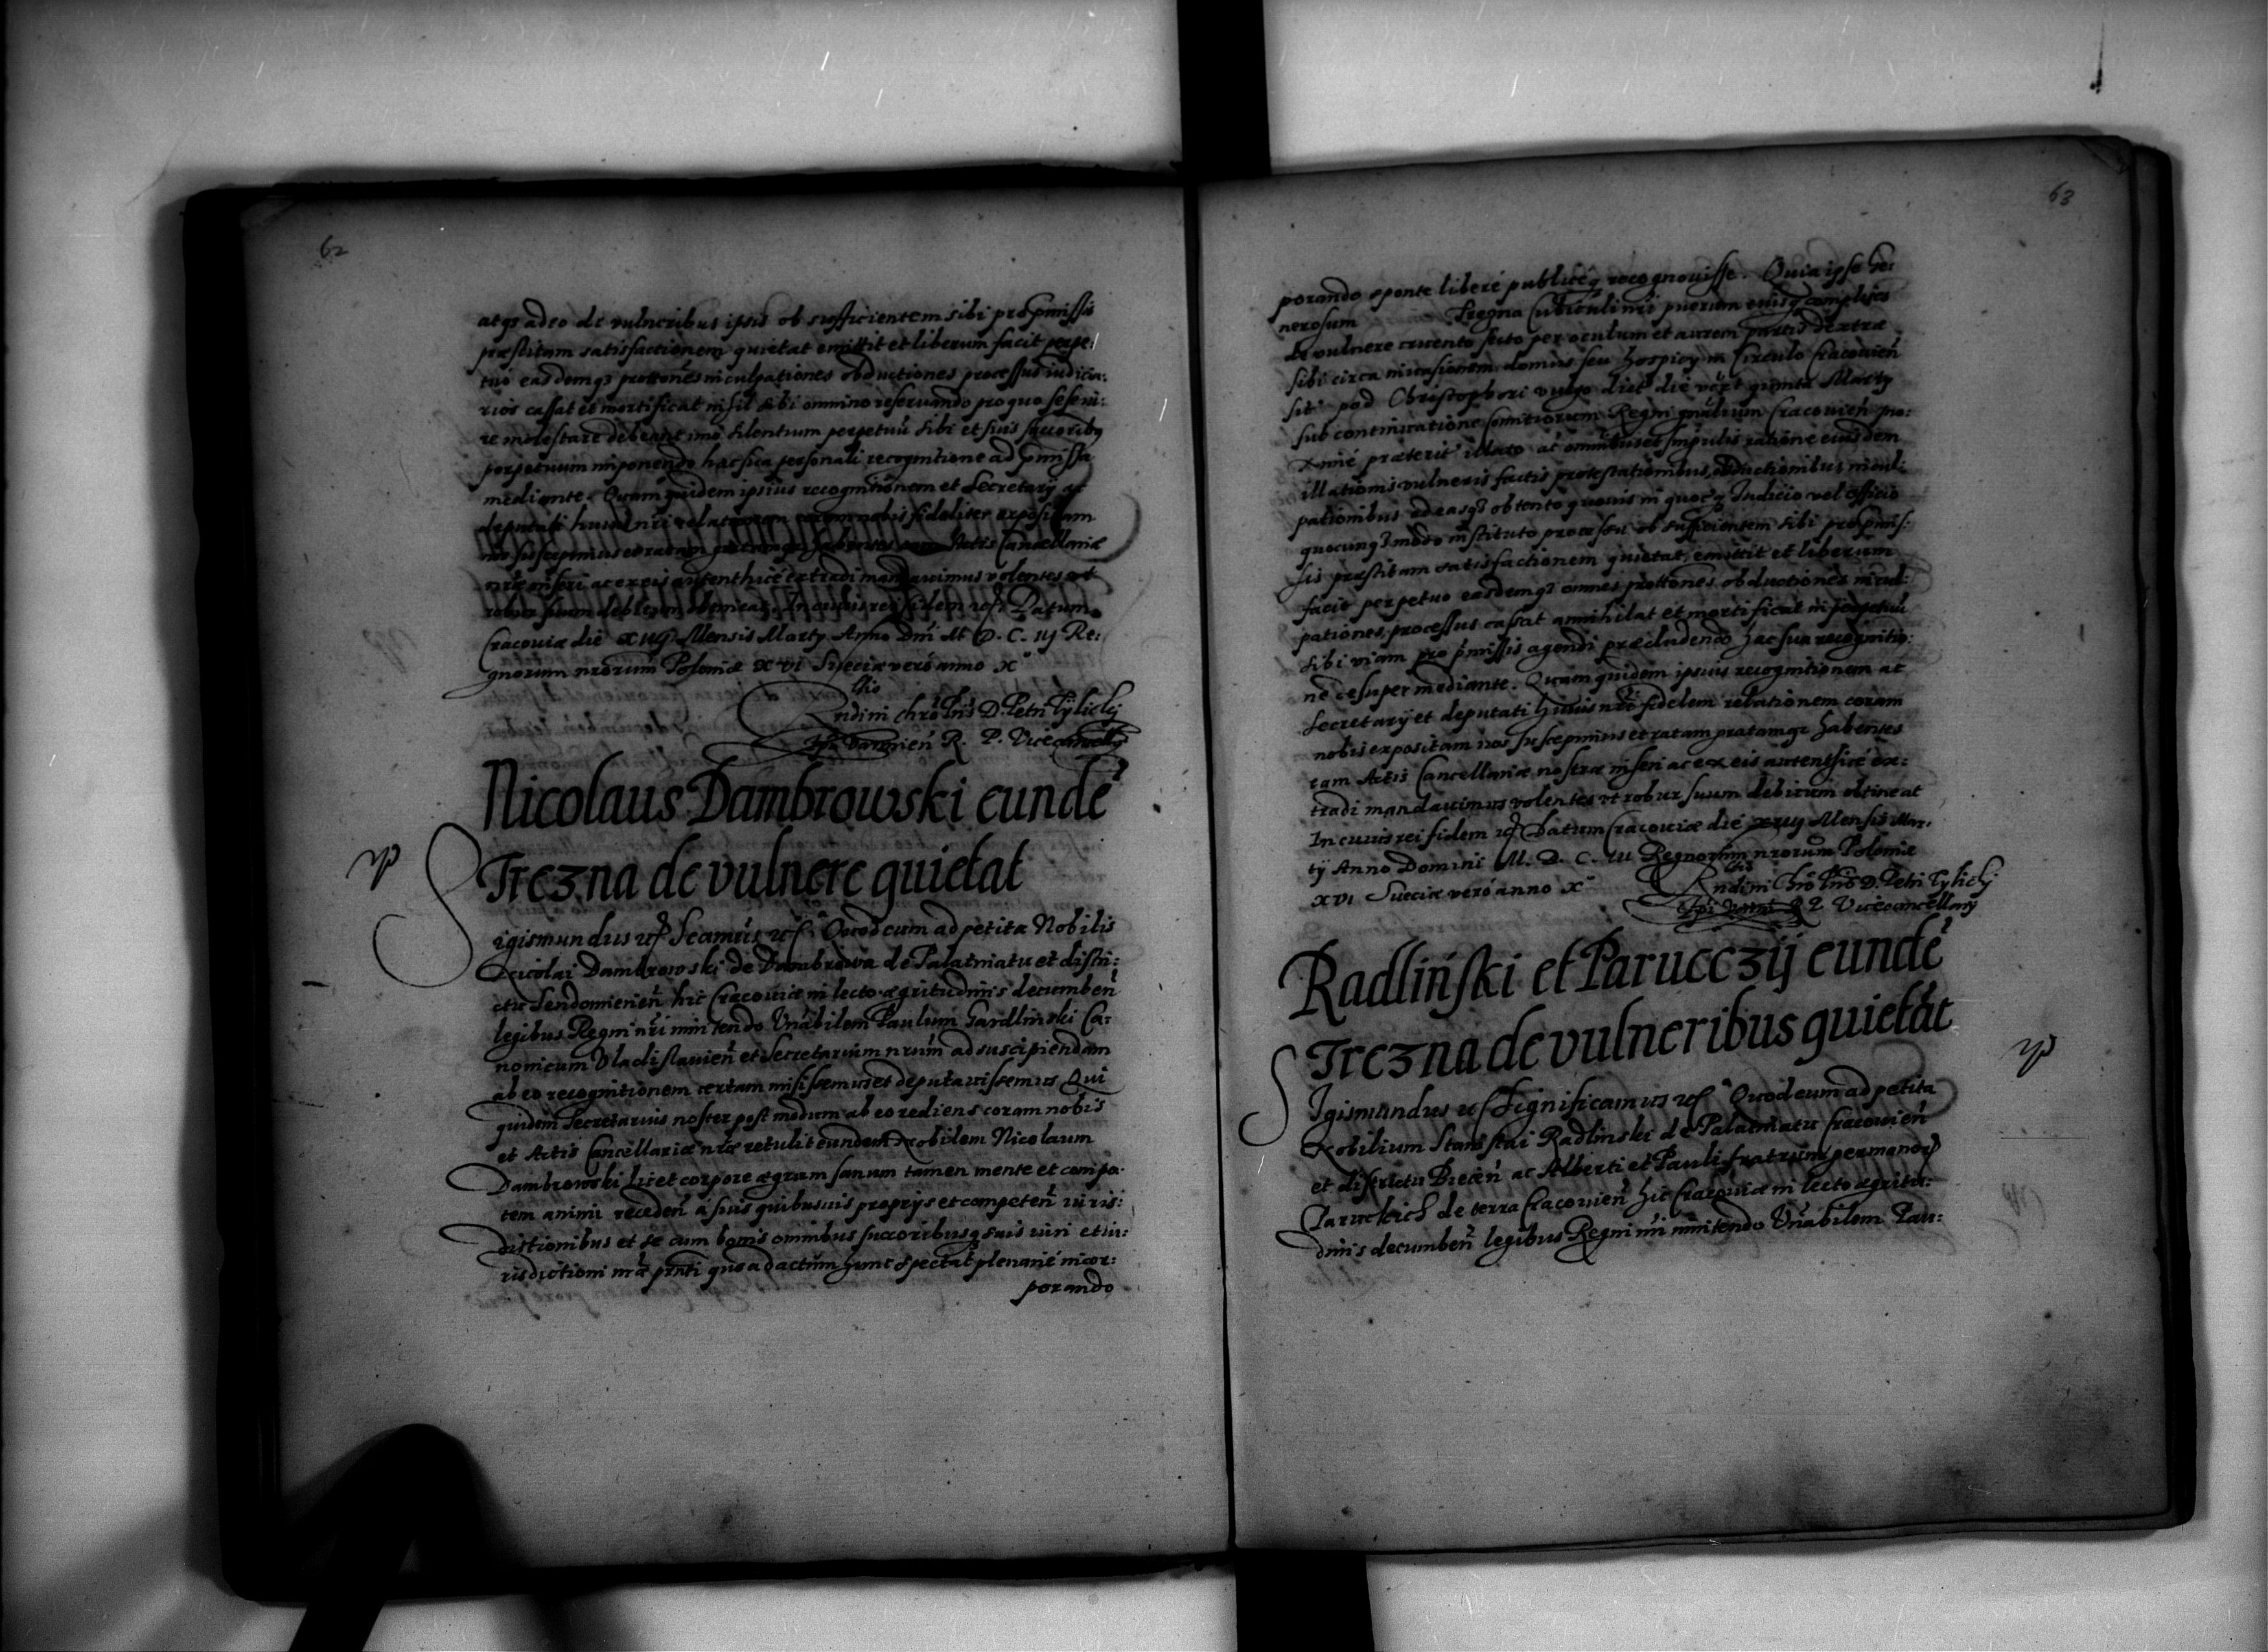 62
atq3 adeo de vulneribus ipsis ob sufficientem sibi pro pmissis
præstitam satisfactionem quietat emittit et liberum facit perpe:
tuo easdemq3 prottones inculpationes obductiones processus iudicia:
rios cassat et mortificat nihil sibi omnino reservando pro quo se seni:
re molestare debeant imo silentium perpetuũ sibi et suis successoribus
perpetuum imponendo hac sua personali recognitione ad pmissa
mediante. Quam quidem ipsius recognitionem et Secretarij ac
deputati huius nri relationem coram nobis fideliter expositam
nos suscepimus et ratam gratamq3 habentes eam Actis Cancellariæ
nræ inseri ac ex eis autenthice extradi mandavimus volentes ut
robur suum debitum obtineat. In cuius rei fidem Datum
Cracoviæ die xiiij Mensis Martij Anno Dni M D. C. iij Re:
gnorum nrorum Poloniæ xvi Sueciæ vero anno x°
Rndini chro Pris D. Petri Tylickij
R. P. Vicecancellarij
Nicolaus Dambrowski eundẽ
Trezna de vulnere quietat
Sigismundus Seamus Quod cum ad petita Nobilis
Nicolai Dambrowski de Dambrowa de Palatinatu et distri:
ctu Sendomirieñ hic Cracoviæ in lecto ægritudinis decumbeñ
legibus Regni nri innitendo Vnabilem Paulum Gardlinski Ca:
nonicum Vladislavieñ et Secretarium nrum ad suscipiendam
ab eo recognitionem certam misissemus et deputavissemus Qui
quidem Secretarius noster post modum ab eo rediens coram nobis
et Actis Cancellariæ nræ retulit eundem Nobilem Nicolaum
Dambrowski licet corpore ægrum sanum tamen mente et compo:
tem animi recedeñ a suis quibusvis proprijs et competeñ iuris:
dictionibus et se cum bonis omnibus successoribusq3 suis iuri et iu:
risdictioni nræ pnti quo ad actum hunc spectat plenarie incor:
porando
63
porando sponte libere publiceq3 recognovisse. Quia ipse Ge:
nerosum Trezna Cubiculi nri puerum eiusq3 complices
de vulnere cruento secto per oculum et aurem partis dextræ
sibi circa invasionem domus seu hospicij in Circulo Cracovieñ
sit pod Christophori vulgo dict die quinta Martij
sub continuatione comitiorum Regni gnalium Cracovieñ pro:
xime præterit illato ac omnibus et singulis ratione eiusdem
illationis vulneris factis protestationibus, obductionibus incul:
pationibus ad easq3 obtento quovis in quocq3 Iudicio vel officio
quocunq3 modo instituto processu ob sufficientem sibi pro pmis:
sis præstitam satisfactionem quietat, emittit et liberum
facit perpetuo easdemq3 omnes prottones obductiones incul:
pationes, processus cassat annihilat et mortificat in perpetuũ
sibi viam pro pmissis agendi præcludendo hac sua recognitio:
ne desuper mediante. Quam quidem ipsius recognitionem ac
Secretarij et deputati huius nri fidelem relationem coram
nobis expositam nos suscepimus et ratam gratamq3 habentes
eam Actis Cancellariæ nostræ inseri ac ex eis autenthice ex:
tradi mandavimus volentes ut robur suum debitum obtineat
In cuius rei fidem Datum Cracoviæ die xviij Mensis Mar:
tij Anno Domini M. D. C. iii Regnorum nrorum Poloniæ
xvi Sueciæ vero anno x°
Rndini Chro Pris D. Petri Tylickij
R. P. Vicecancellarij
Radlinski et Parucczij eundẽ
Trezna de vulneribus quietãt
SIgismundus Significamus Quod cum ad petita
Nobilium Stanislai Radlinski de Palatinatu Cracovieñ
et districtu Biecen̄ ac Alberti et Pauli fratrum germanor
Paruckich de terra Cracovieñ hic Cracoviæ in lecto ægritu:
dinis decumbeñ legibus Regni nri innitendo Vnabilem Pau: